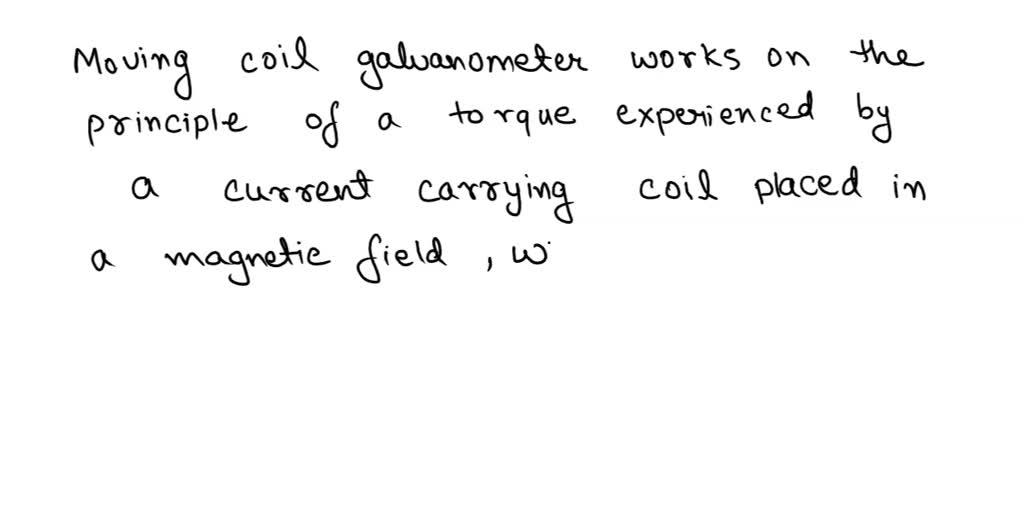 Moving coil galvanometer works on the
principle of a torque experienced by
a current carrying coil placed in
a magnetic field, w